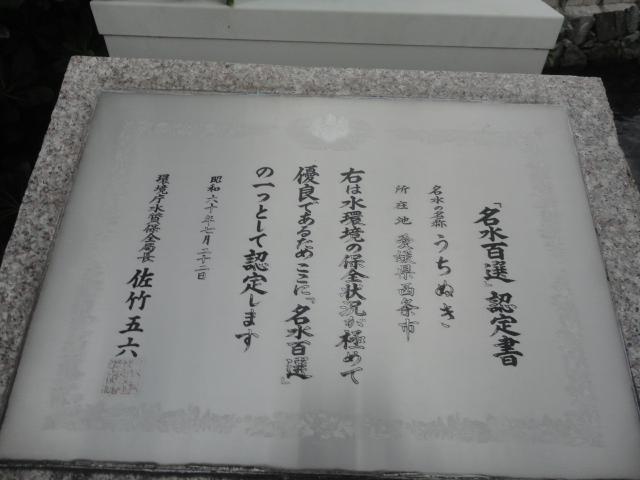 『名水百選』認定書
名水の名称 うちぬき
所在地 愛媛県西条市
右は水環境の保全状況が極めて
優良であるためここに『名水百選』
の一つとして認定します
昭和六十年七月二十二日
環境庁水質保全局長 佐竹五六